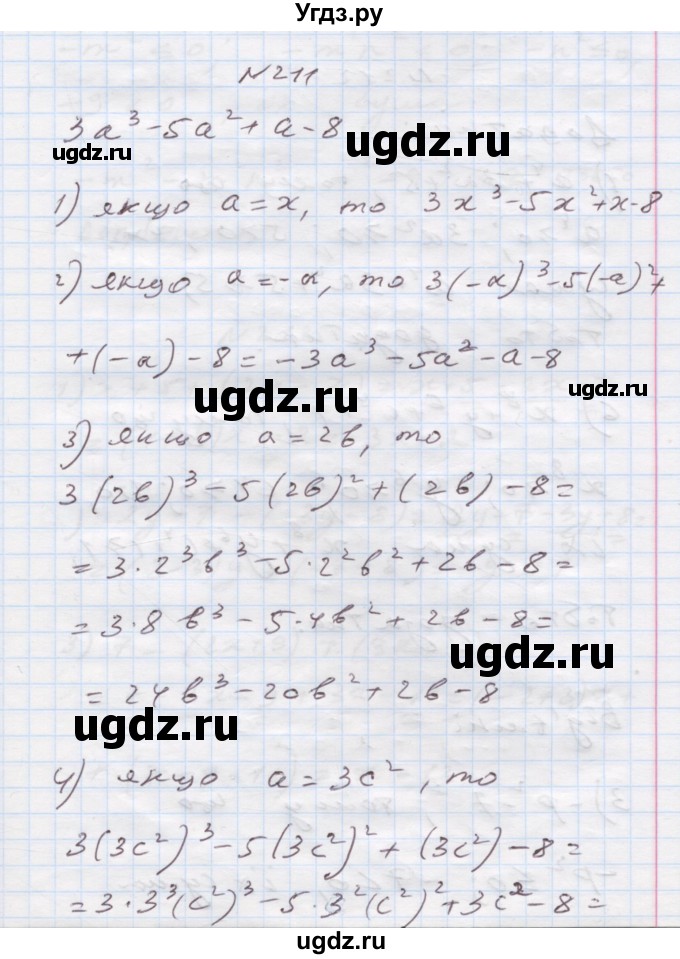 Угдз.ру
N211
3a³-5a²+a-8
ugdz.ru
ugdz.ru
1) якщо a=x, то 3x³-5x²+x-8
2) якщо a=-a, то 3(-a)³-5(-a)²+
+(-a)-8=-3a³-5a²-a-8
ugdz.ru
ugdz.ru
3) якщо a=2b, то
3(2b)³-5(2b)²+(2b)-8=
=3·2³b³-5·2²b²+2b-8=
=3·8b³-5·4b²+2b-8=
ugdz.ru
=24b³-20b²+2b-8
ugdz.ru
4) якщо a=3c², то
3(3c²)³-5(3c²)²+(3c²)-8=
=3·3³(c²)³-5·3²(c²)²+3c²-8=
ugdz.ru